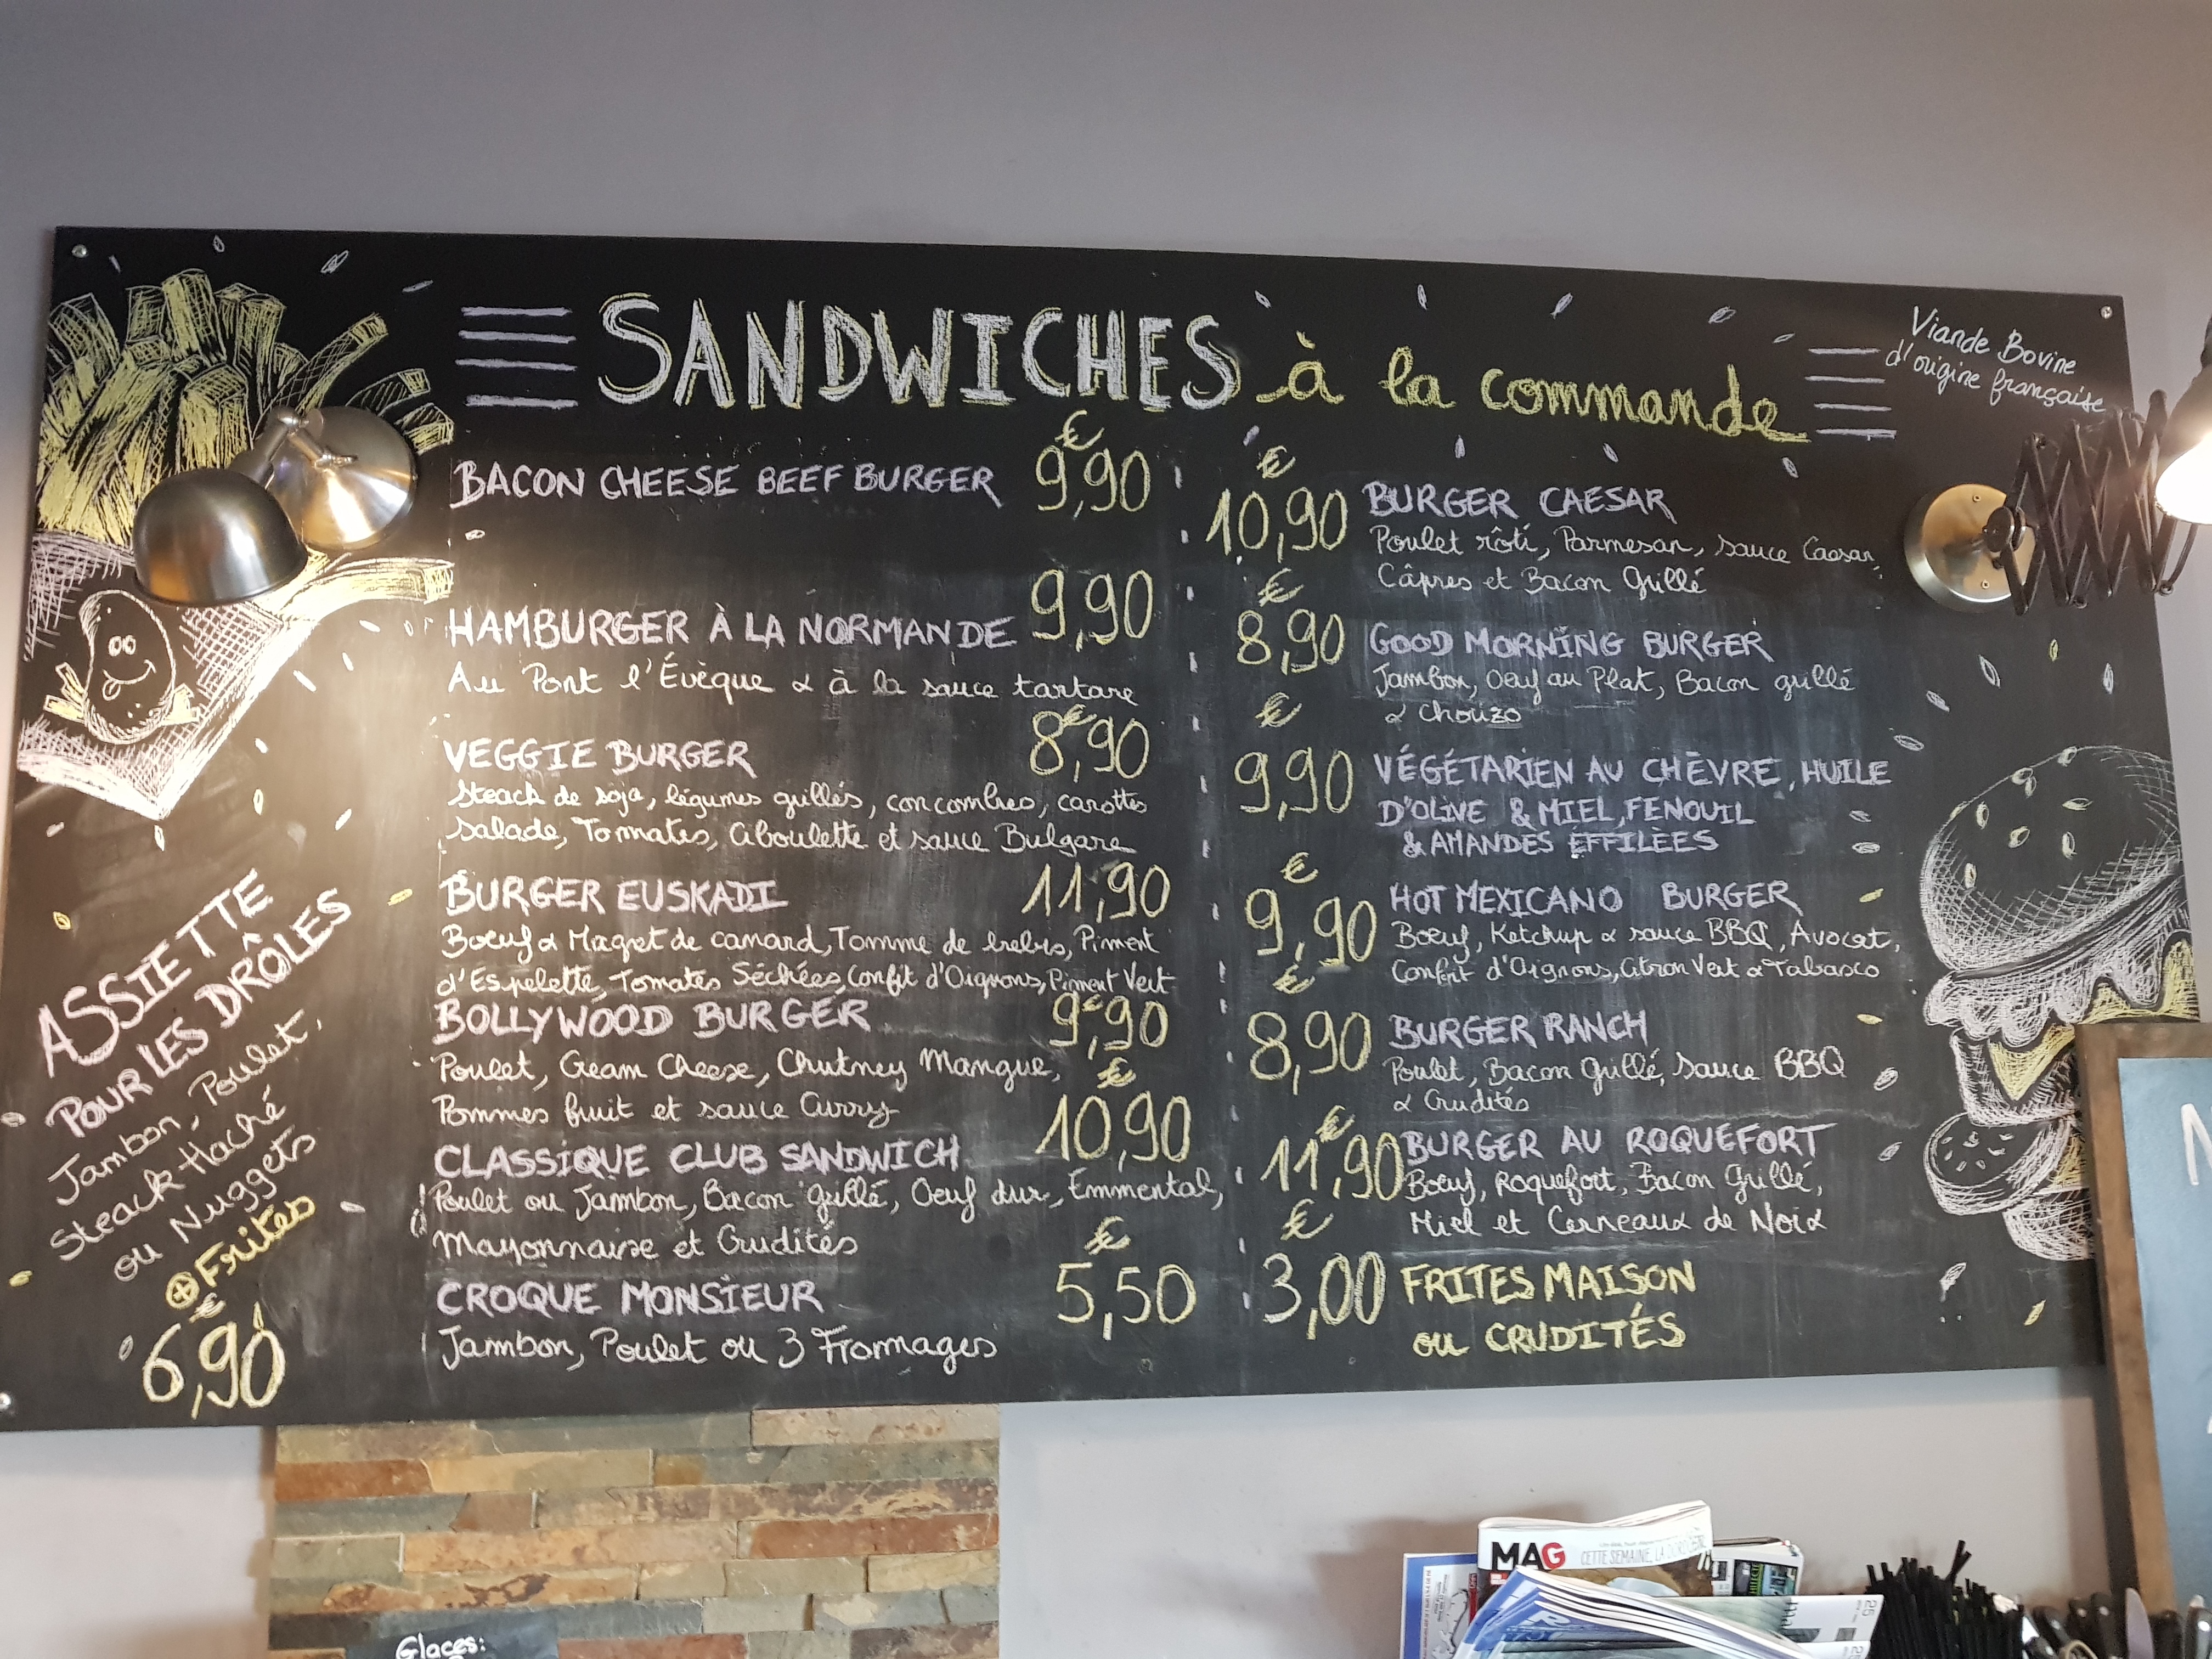 SANDWICHES à la commande
Viande Bovine
d'origine française
BACON CHEESE BEEF BURGER € 9,90
HAMBURGER À LA NORMANDE 9,90
Au Pont l'Évêque & à la sauce tartare
VEGGIE BURGER € 8,90
Steack de soja, légumes grillés, concombres, carottes
Salade, Tomates, Ciboulette et sauce Bulgare
BURGER EUSKADI 11,90
Boeuf & Magret de canard, Tomme de brebis, Piment
d'Espelette, Tomates Séchées, Confit d'Oignons, Piment Vert
BOLLYWOOD BURGER € 9,90
Poulet, Cream Cheese, Chutney Mangue,
Pommes fruit et sauce Curry
CLASSIQUE CLUB SANDWICH € 10,90
Poulet ou Jambon, Bacon grillé, Oeuf dur, Emmental,
Mayonnaise et Crudités
CROQUE MONSIEUR € 5,50
Jambon, Poulet ou 3 Fromages
€ 10,90 BURGER CAESAR
Poulet rôti, Parmesan, sauce Caesar,
Câpres et Bacon Grillé
€ 8,90 GOOD MORNING BURGER
Jambon, Oeuf au Plat, Bacon grillé
& Chorizo
€ 9,90 VÉGÉTARIEN AU CHÈVRE, HUILE
D'OLIVE & MIEL, FENOUIL
& AMANDES EFFILÈES
€ 9,90 HOT MEXICANO BURGER
Boeuf, Ketchup & sauce BBQ, Avocat,
Confit d'Oignons, Citron Vert & Tabasco
€ 8,90 BURGER RANCH
Poulet, Bacon Grillé, Sauce BBQ
& Crudités
€ 11,90 BURGER AU ROQUEFORT
Boeuf, Roquefort, Bacon Grillé,
Miel et Cerneaux de Noix
€ 3,00 FRITES MAISON
ou CRUDITÉS
ASSIETTE
POUR LES DRÔLES
Jambon, Poulet,
Steack Haché
ou Nuggets
⊕ Frites
€
6,90
Glaces:
MAG
CETTE SEMAINE,